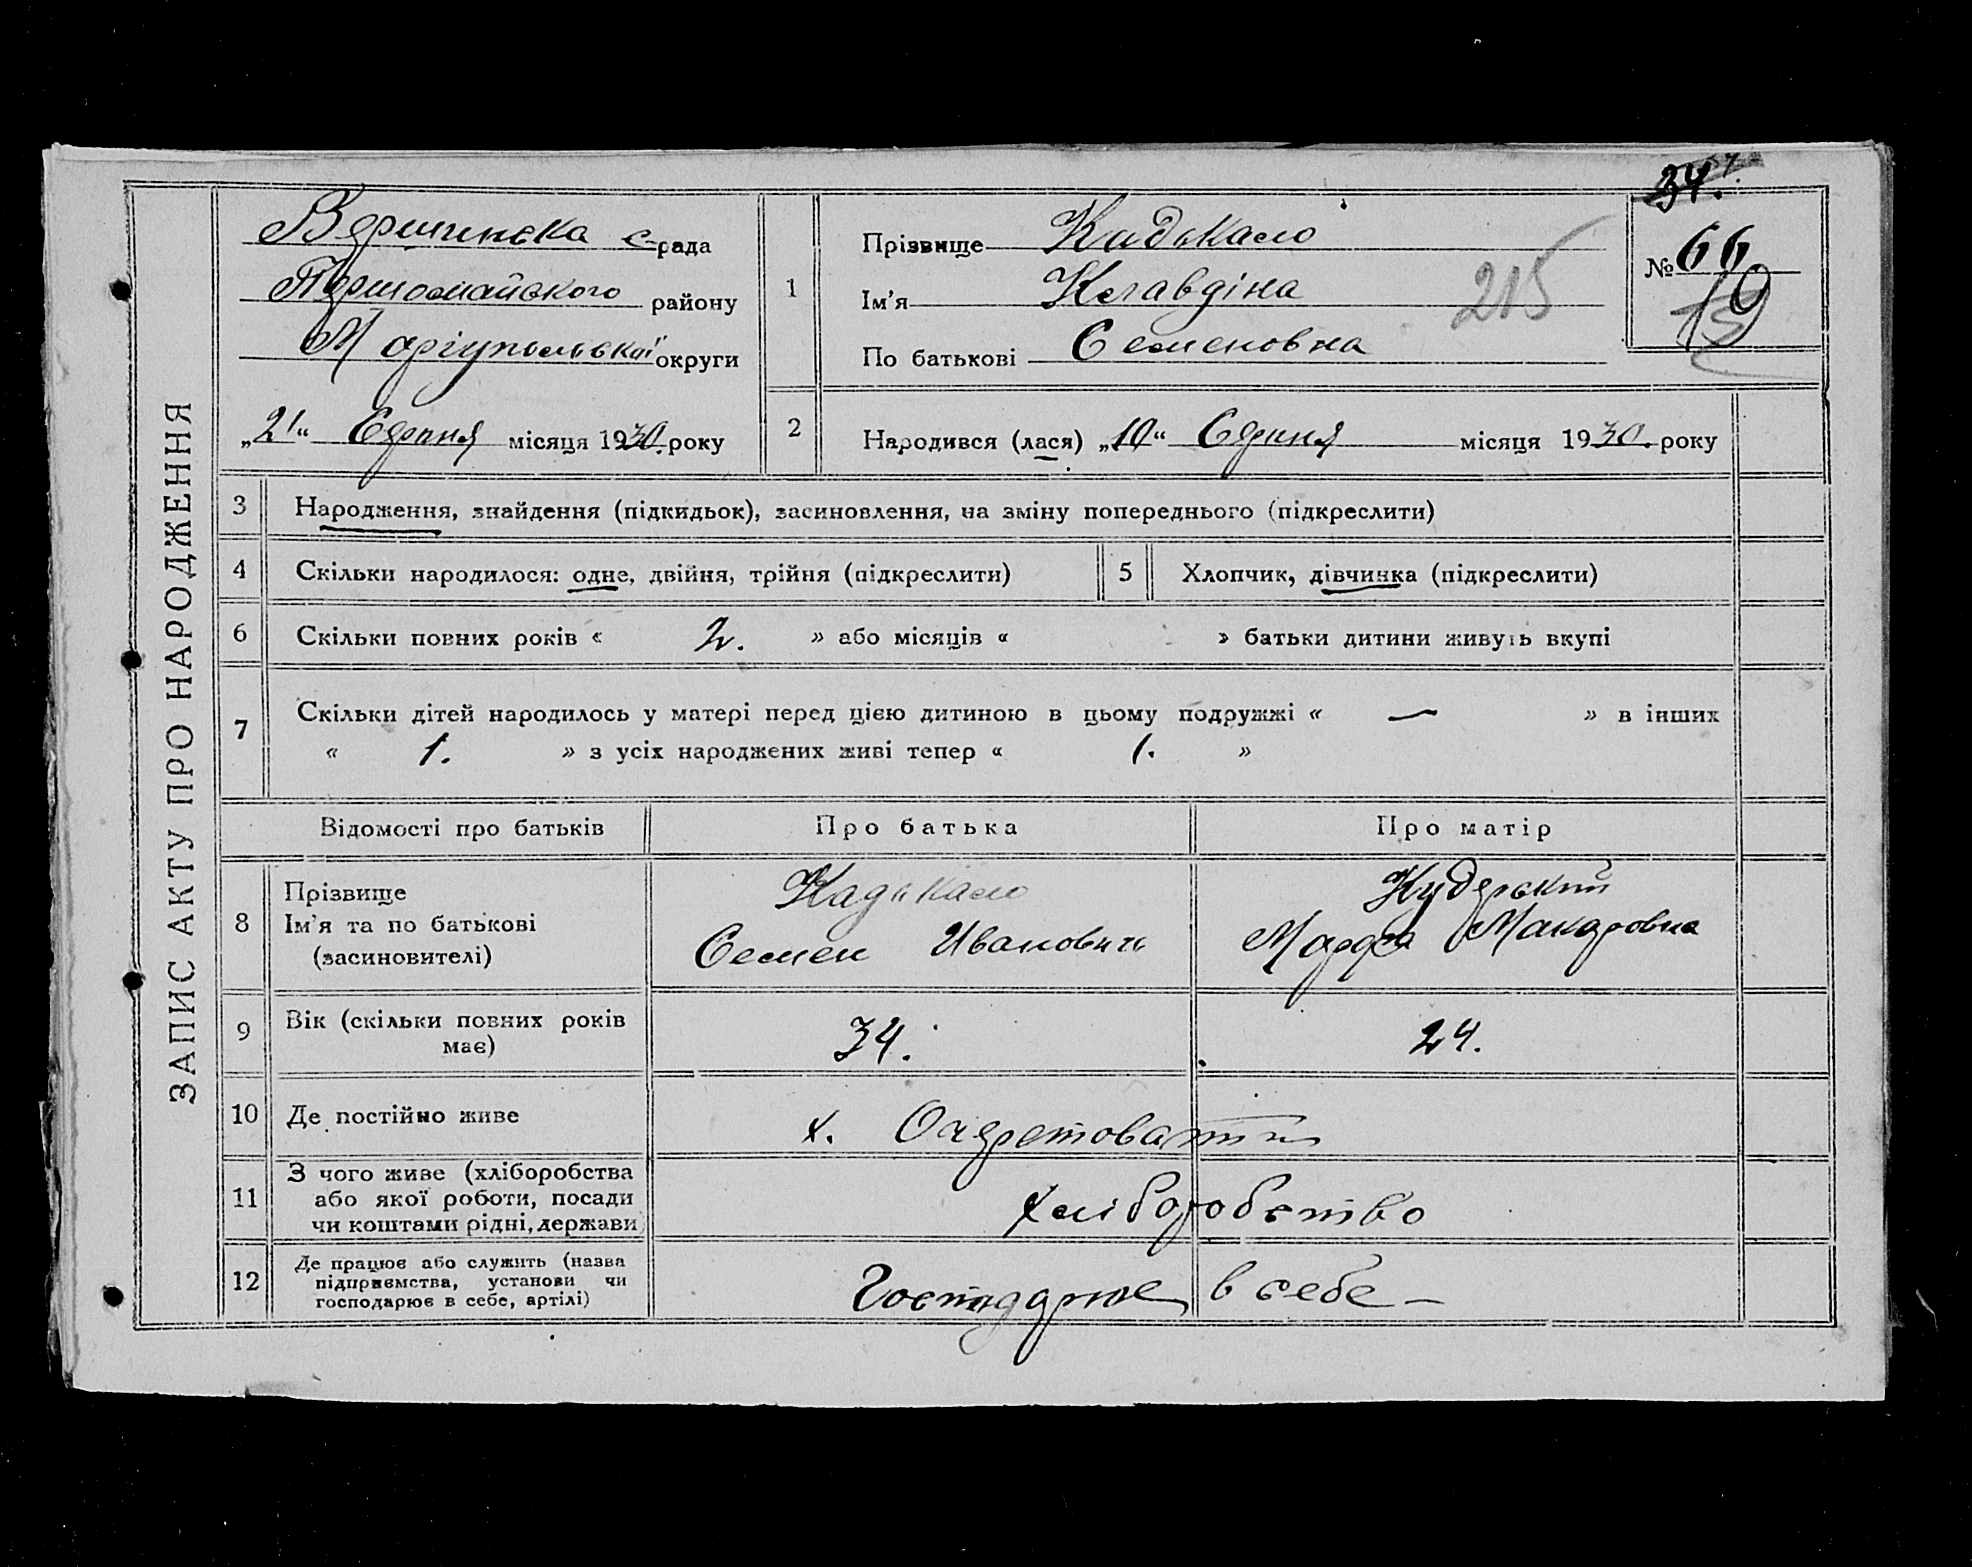 ЗАПИС АКТУ ПРО НАРОДЖЕННЯ
Вершинська с-рада
Першомайського району
Маріупольської округи
„21“ Серпня місяця 1930. року
1
Прізвище Кадькало
Ім'я Клавдіна
По батькові Семеновна
215
34.
№ 66
19
2
Народився (лася) „10“ Серпня місяця 1930. року
3 Народження, знайдення (підкидьок), засиновлення, на зміну попереднього (підкреслити)
4 Скільки народилося: одне, двійня, трійня (підкреслити) 5 Хлопчик, дівчинка (підкреслити)
6 Скільки повних років « 2. » або місяців « » батьки дитини живуть вкупі
7 Скільки дітей народилось у матері перед цією дитиною в цьому подружжі « — » в інших
« 1. » з усіх народжених живі тепер « 1. »
Відомості про батьків Про батька Про матір
8 Прізвище
Ім'я та по батькові
(засиновителі)
Кадькало
Семен Иванович
Кудерский
Марфа Макаровна
9 Вік (скільки повних років
має)
34. 24.
10 Де постійно живе х. Очеретоватий
11 З чого живе (хліборобства
або якої роботи, посади
чи коштами рідні, держави
Хліборобство
12 Де працює або служить (назва
підприємства, установи чи
господарює в себе, артілі)
Господарює в себе —